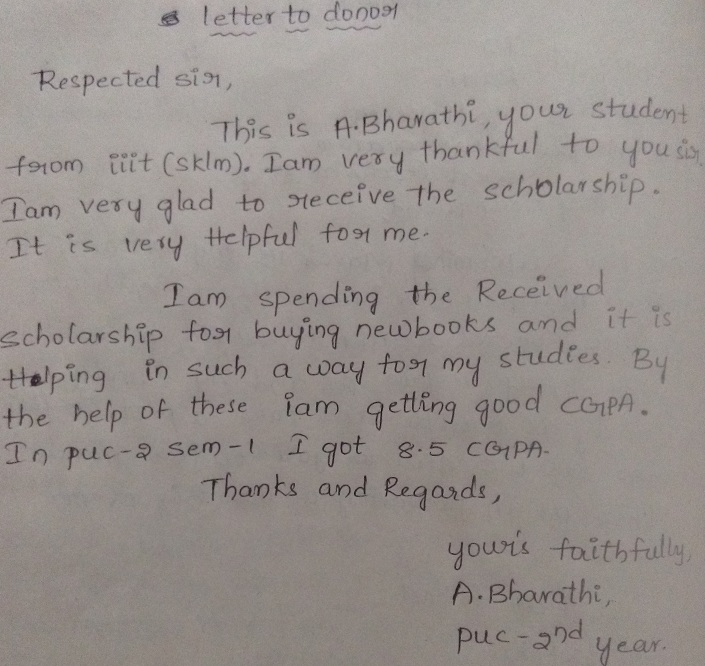 letter to donor
Respected sir,
This is A.Bharathi, your student
from iiit (sklm). Iam very thankful to you sir.
Iam very glad to receive the scholarship.
It is very Helpful for me.
Iam spending the Received
scholarship for buying newbooks and it is
Helping in such a way for my studies. By
the help of these iam getting good CGPA.
In puc-2 sem-1 I got 8.5 CGPA.
Thanks and Regards,
your's faithfully,
A.Bharathi,
puc-2nd year.